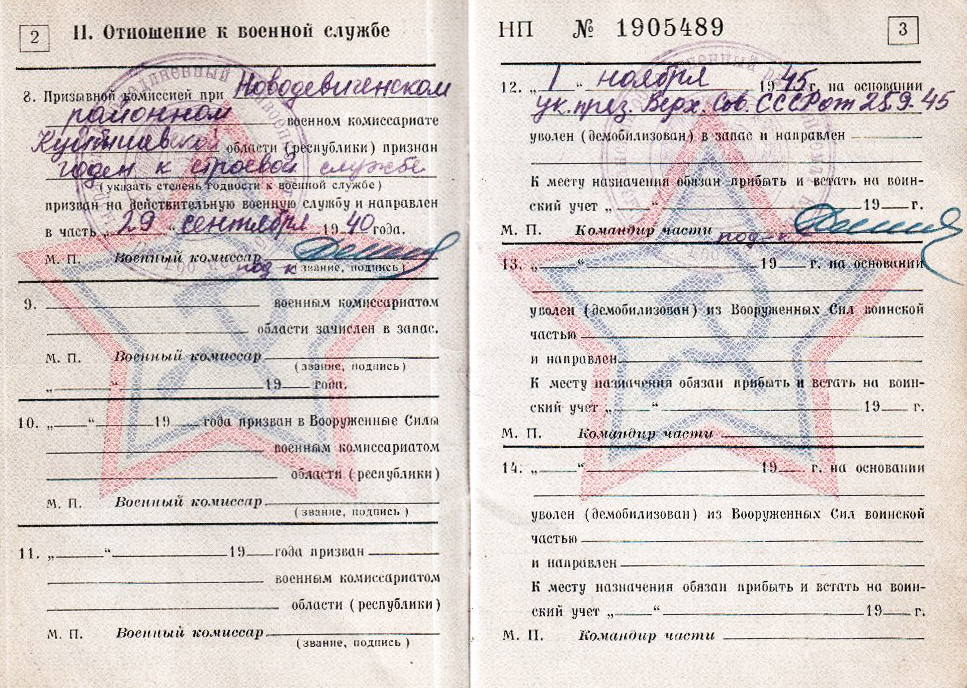 2
II. Отношение к военной службе
8. Призывной комиссией при Новодевиченском
районном военном комиссариате
Куйбышевской области (республики) признан
годен к строевой службе
(указать степень годности к военной службе)
призван на действительную военную службу и направлен
в часть „29“ сентября 1940 года.
М. П. Военный комиссар
подп-к (звание, подпись)
9. военным комиссариатом
области зачислен в запас.
М. П. Военный комиссар
(звание, подпись)
„ “ 19 года.
10. „ “ 19 года призван в Вооруженные Силы
военным комиссариатом
области (республики)
М. П. Военный комиссар
(звание, подпись)
11. „ “ 19 года призван
военным комиссариатом
области (республики)
М. П. Военный комиссар
(звание, подпись)
НП № 1905489
3
12. „1“ ноября 1945 г. на основании
ук. през. Верх. Сов. СССР от 25.9.45
уволен (демобилизован) в запас и направлен
К месту назначения обязан прибыть и встать на воин-
ский учет „ “ 19 г.
М. П. Командир части
подп-к
13. „ “ 19 г. на основании
уволен (демобилизован) из Вооруженных Сил воинской
частью
и направлен
К месту назначения обязан прибыть и встать на воин-
ский учет „ “ 19 г.
М. П. Командир части
14. „ “ 19 г. на основании
уволен (демобилизован) из Вооруженных Сил воинской
частью
и направлен
К месту назначения обязан прибыть и встать на воин-
ский учет „ “ 19 г.
М. П. Командир части